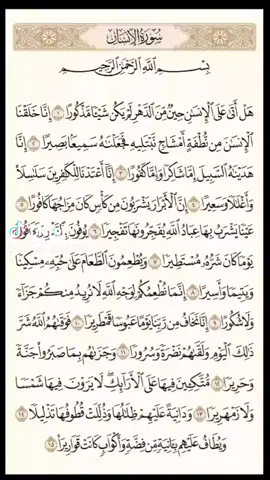 سورة الإنسان
بسم الله الرحمن الرحيم
هَلْ أَتَىٰ عَلَى الْإِنسَٰنِ حِينٌ مِّنَ الدَّهْرِ لَمْ يَكُن شَيْـًٔا مَّذْكُورًا ١ إِنَّا خَلَقْنَا
الْإِنسَٰنَ مِن نُّطْفَةٍ أَمْشَاجٍ نَّبْتَلِيهِ فَجَعَلْنَٰهُ سَمِيعًۢا بَصِيرًا ٢ إِنَّا
هَدَيْنَٰهُ السَّبِيلَ إِمَّا شَاكِرًا وَإِمَّا كَفُورًا ٣ إِنَّآ أَعْتَدْنَا لِلْكَٰفِرِينَ سَلَٰسِلَا۟
وَأَغْلَٰلًا وَسَعِيرًا ٤ إِنَّ الْأَبْرَارَ يَشْرَبُونَ مِن كَأْسٍ كَانَ مِزَاجُهَا كَافُورًا ٥
عَيْنًا يَشْرَبُ بِهَا عِبَادُ اللَّهِ يُفَجِّرُونَهَا تَفْجِيرًا ٦ يُوفُونَ
يَوْمًا كَانَ شَرُّهُۥ مُسْتَطِيرًا ٧ وَيُطْعِمُونَ الطَّعَامَ عَلَىٰ حُبِّهِۦ مِسْكِينًا
وَيَتِيمًا وَأَسِيرًا ٨ إِنَّمَا نُطْعِمُكُمْ لِوَجْهِ اللَّهِ لَا نُرِيدُ مِنكُمْ جَزَآءً
وَلَا شُكُورًا ٩ إِنَّا نَخَافُ مِن رَّبِّنَا يَوْمًا عَبُوسًا قَمْطَرِيرًا ١٠ فَوَقَىٰهُمُ اللَّهُ شَرَّ
ذَٰلِكَ الْيَوْمِ وَلَقَّىٰهُمْ نَضْرَةً وَسُرُورًا ١١ وَجَزَىٰهُم بِمَا صَبَرُوا۟ جَنَّةً
وَحَرِيرًا ١٢ مُّتَّكِـِٔينَ فِيهَا عَلَى الْأَرَآئِكِ لَا يَرَوْنَ فِيهَا شَمْسًا
وَلَا زَمْهَرِيرًا ١٣ وَدَانِيَةً عَلَيْهِمْ ظِلَٰلُهَا وَذُلِّلَتْ قُطُوفُهَا تَذْلِيلًا ١٤
وَيُطَافُ عَلَيْهِم بِـَٔانِيَةٍ مِّن فِضَّةٍ وَأَكْوَابٍ كَانَتْ قَوَارِيرَا۠ ١٥